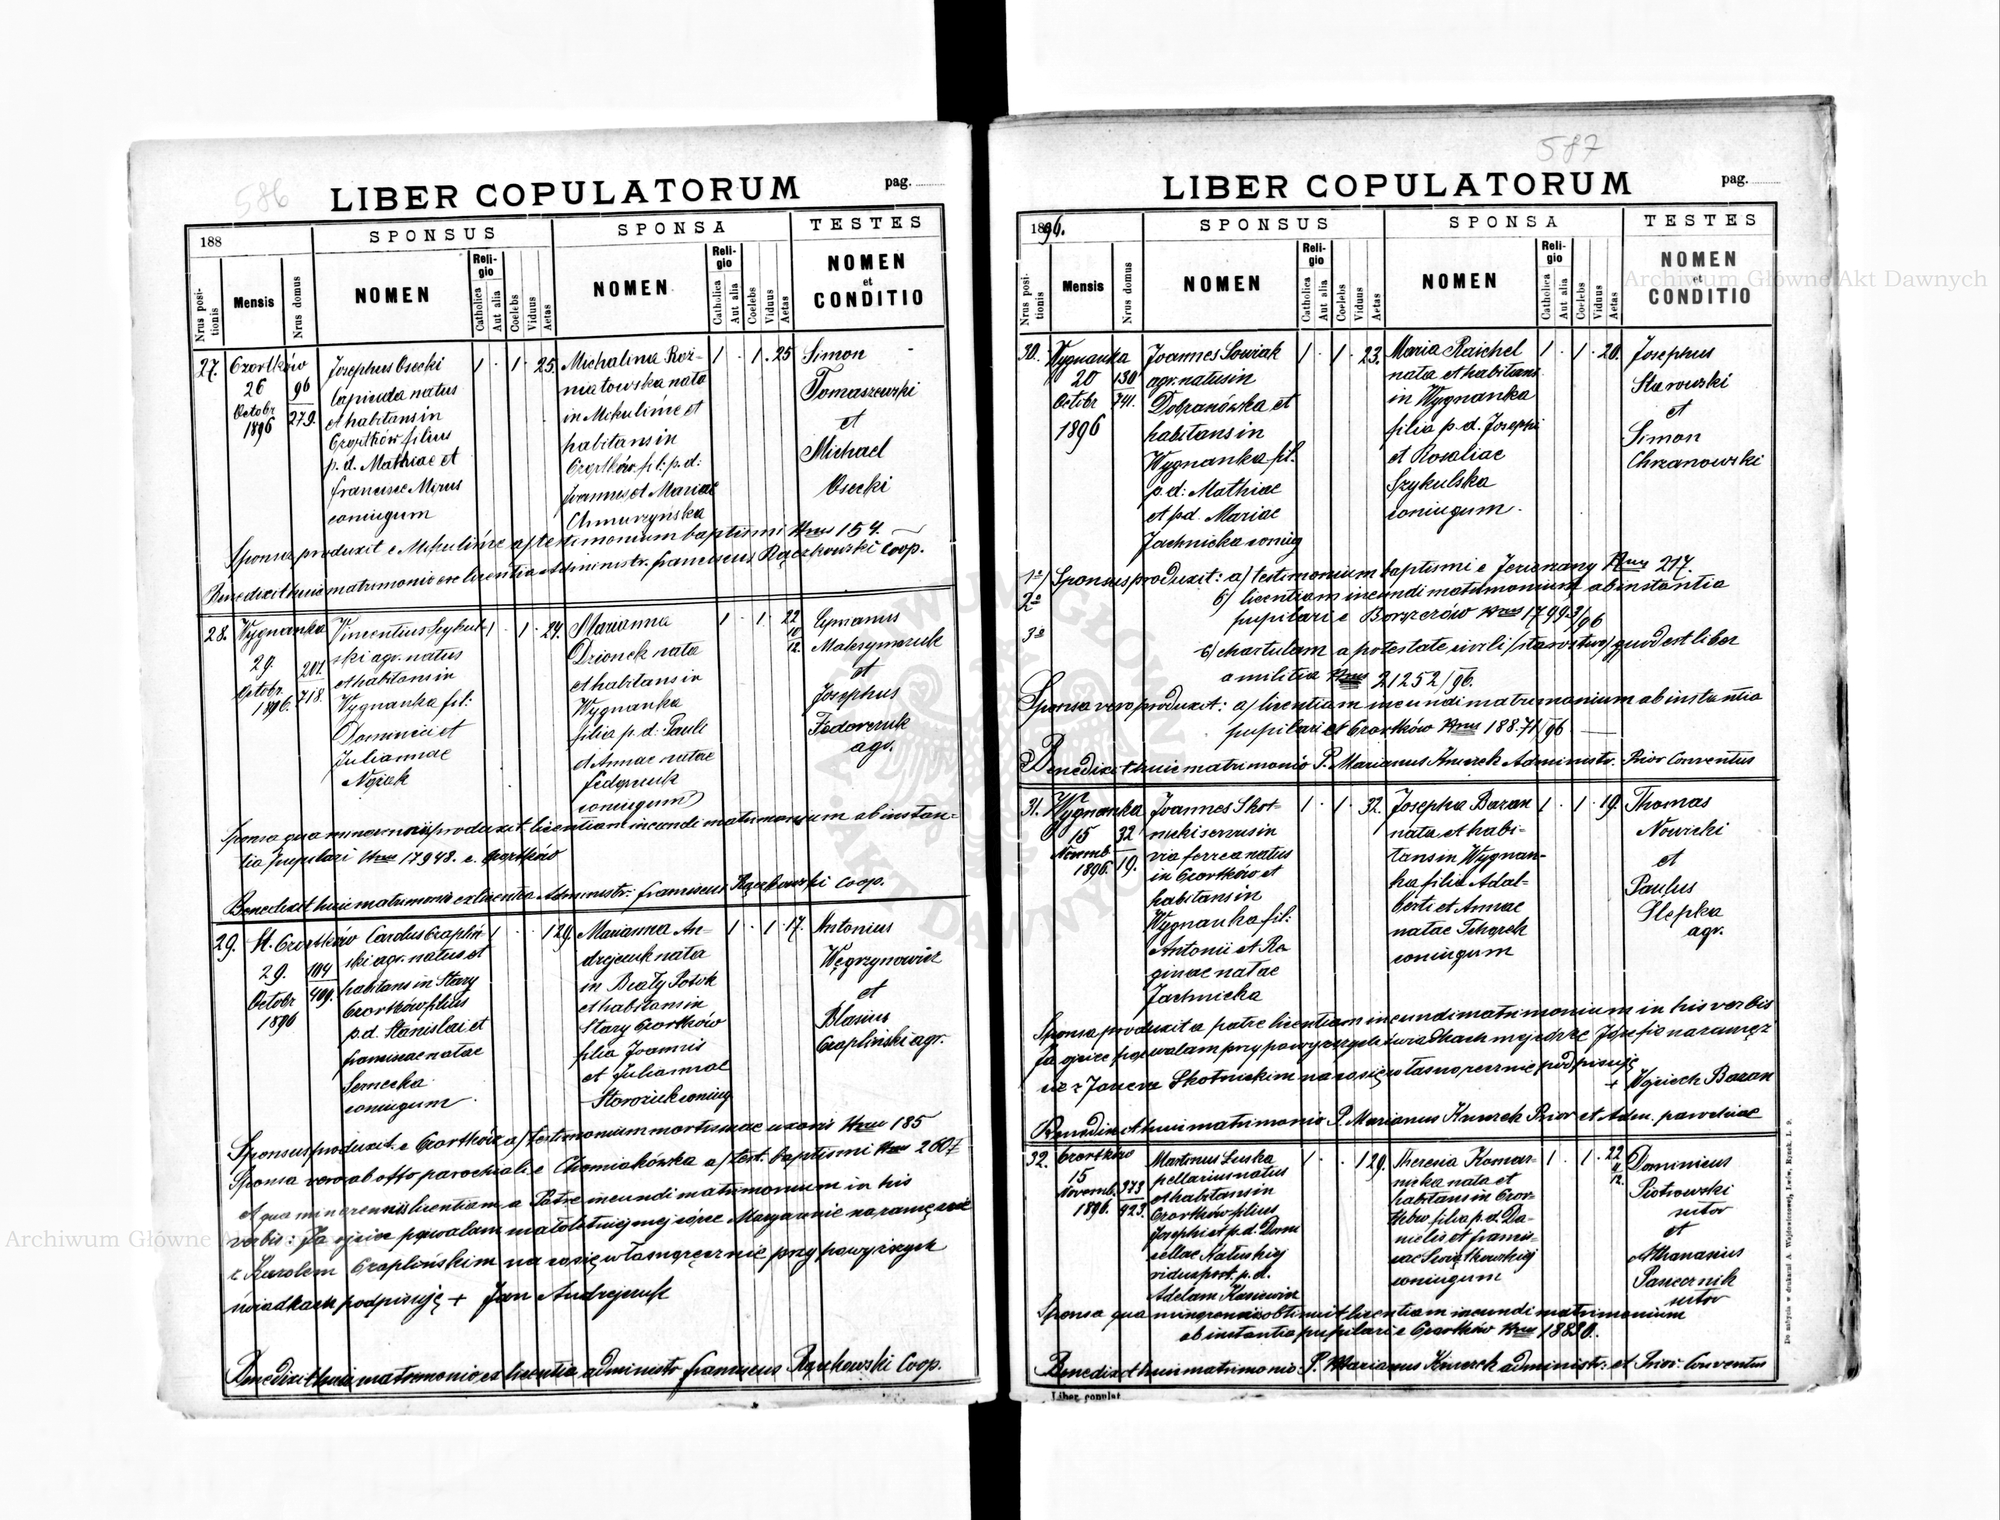 586
LIBER COPULATORUM
pag.
188
SPONSUS
SPONSA
TESTES
Nrus positionis
Mensis
Nrus domus
NOMEN
Religio
Catholica
Aut alia
Coelebs
Viduus
Aetas
NOMEN
Religio
Catholica
Aut alia
Coelebs
Viduus
Aetas
NOMEN
et
CONDITIO
27.
Czortków
26
Octobr
1896
96
279.
Josephus Osecki
lapicida natus
et habitans in
Czortków filius
p. d. Mathiae et
Franciscae
coniugum
1 . 1 . 25.
Michalina Roź-
niatowska nata
in Mikulińce et
habitans in
Czortków fil: p. d:
Joannis et Mariae
Chmurzyńska
1 . 1 . 25
Simon
Tomaszewski
et
Michael
Osecki
Sponsa produxit e Mikulińce a/ testimonium baptismi Nrus 154.
Benedixit huic matrimonio ex licentia Administr. Franciscus Rączkowski Coop.
28.
Wygnanka
29.
Octobr.
1896.
201.
718.
Vincentius Szykul-
ski agr. natus
et habitans in
Wygnanka fil:
Dominici et
Juliannae
1 . 1 . 24.
Marianna
Dzionek nata
et habitans in
Wygnanka
filia p. d: Pauli
et Annae natae
Fedorczuk
coniugum
1 . 1 . 22 10/12
Maksymczuk
et
Josephus
Fedorczuk
agr.
Sponsa qua minorennis produxit licentiam ineundi matrimonium ab instan-
tia pupilari Nrus 17948. e Czortków
Benedixit huic matrimonio ex licentia Administr: Franciscus Rączkowski Coop.
29.
St. Czortków
29.
Octobr
1896
104
409.
Carolus Czaplin-
ski agr. natus et
habitans in Stary
Czortków filius
p. d. Stanislai et
Franciscae natae
Sernecka
coniugum
1 . . 1 29.
Marianna An-
drejczuk nata
in Biały Potok
et habitans in
Stary Czortków
filia Joannis
et Juliannae
Storożuk coniug
1 . 1 . 17.
Antonius
Węgrzynowicz
et
Blasius
Czapliński agr.
Sponsus produxit e Czortków a/ testimonium mortis suae uxoris Nrus 185
Sponsa vero ab offo parochiali e Chomiakówka a/ test. baptismi Nrus 2607
et qua minorennis licentiam a Patre ineundi matrimonium in his
verbis: Ja ojciec pozwalam małoletniej mej córce Maryannie na zamęście
z Karolem Czaplińskim na co się własnoręcznie przy powyższych
świadkach podpisuję + Jan Andrejczuk
Benedixit huic matrimonio ex licentia administr Franciscus Rączkowski Coop.
587
LIBER COPULATORUM
pag.
1896.
SPONSUS
SPONSA
TESTES
Nrus positionis
Mensis
Nrus domus
NOMEN
Religio
Catholica
Aut alia
Coelebs
Viduus
Aetas
NOMEN
Religio
Catholica
Aut alia
Coelebs
Viduus
Aetas
NOMEN
et
CONDITIO
30.
Wygnanka
20
Octobr
1896
130
741.
Joannes Sowiak
agr. natus in
Dobranówka et
habitans in
Wygnanka fil.
p. d: Mathiae
et p. d. Mariae
Jachnicka coniug
1 . 1 . 23.
Maria Reichel
nata et habitans
in Wygnanka
filia p. d. Josephi
et Rosaliae
Szykulska
coniugum.
1 . 1 . 20.
Josephus
Starowski
et
Simon
Chrzanowski
1o) Sponsus produxit: a) testimonium baptismi e Jezierzany Nrus 217.
2o b) licentiam ineundi matrimonium ab instantia
pupilari e Borszczów Nrus 17992/96
3o c) chartulam a potestate civili (starostwo) quod est liber
a militia Nrus 21252/96.
Sponsa vero produxit: a) licentiam ineundi matrimonium ab instantia
pupilari e Czortków Nrus 18871/96
Benedixit huic matrimonio P. Marianus Knurek Administr. Prior Conventus
31.
Wygnanka
15
Novemb.
1896.
32
19.
Joannes Skot-
nicki servus in
via ferrea natus
in Czortków et
habitans in
Wygnanka fil:
Antonii et Re
ginae natae
Jachnicka
1 . 1 . 32.
Josepha Baran
nata et habi-
tans in Wygnan-
ka filia Adal-
berti et Annae
natae
coniugum
1 . 1 . 19.
Thomas
Nowicki
et
Paulus
Slepka
agr.
Sponsa produxit a patre licentiam ineundi matrimonium in his verbis
Ja ojciec pozwalam przy powyższych świadkach mej córce Józefie na zamęż
cie z Janem Skotnickim na co się własnoręcznie podpisuję
+ Wojciech Baran
Benedixit huic matrimonio P. Marianus Knurek Prior et Adm. parochiae
32.
Czortków
15
Novemb.
1896.
973
923.
Martinus Luska
pellarius natus
et habitans in
Czortków filius
Josephi et p. d. Dom
cellae
viduus post. p. d.
Adelam
1 . . 1 29.
Theresia Komar-
nicka nata et
habitans in Czor-
tków filia p. d. Da-
nielis et Francis-
cae
coniugum
1 . 1 . 22 11/12.
Dominicus
Piotrowski
sutor
et
Athanasius
Pancernik
sutor
Sponsa qua minorennis obtinuit licentiam ineundi matrimonium
ab instantia pupilari e Czortków Nrus 18830.
Benedixit huic matrimonio P. Marianus Knurek administr: et Prior Conventus
Liber copulat.
Do nabycia w drukarni A. Wajdowiczowej, Lwów, Rynek, L. 9.
Archiwum Główne Akt Dawnych
Archiwum Główne